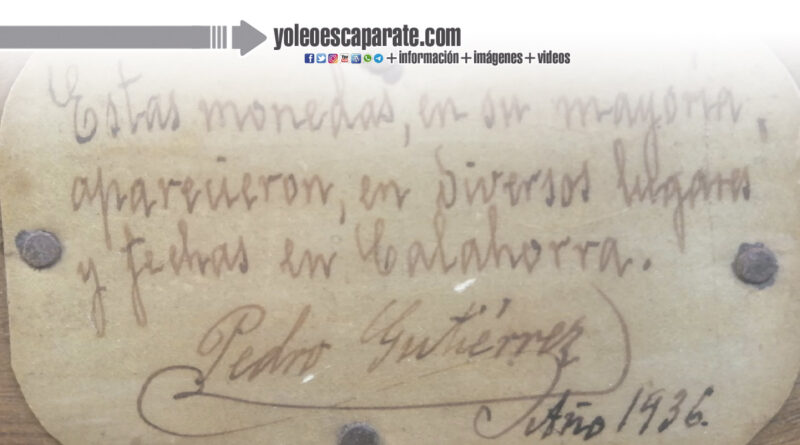 yoleoescaparate.com
+información+imágenes+videos
Estas monedas, en su mayoría,
aparecieron, en diversos lugares
y fechas en Calahorra.
Pedro Gutiérrez
Año 1936.